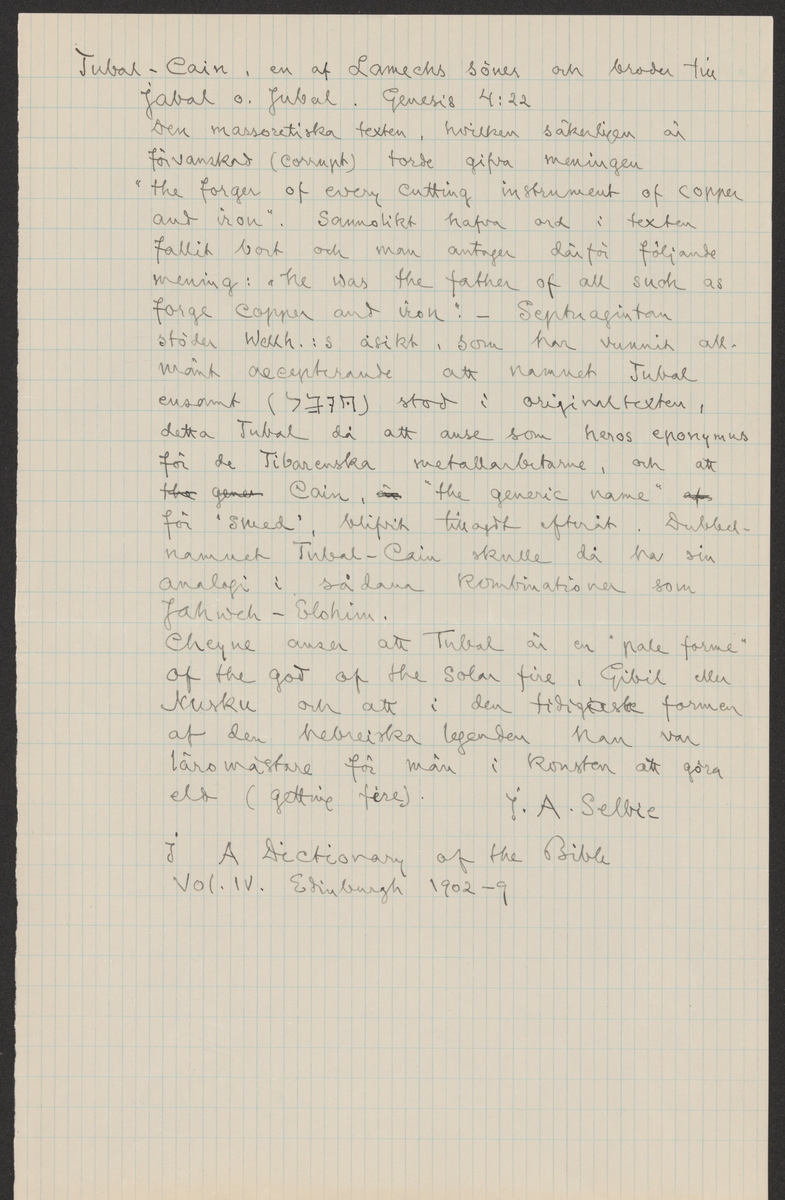 Tubal-Cain, en af Lamechs söner och broder till
Jabal o. Jubal. Genesis 4:22
Den massoretiska texten, hvilken säkerligen är
förvanskad (corrupt) torde gifva meningen
"the forger of every cutting instrument of copper
and iron". Sannolikt hafva ord i texten
fallit bort och man antager därför följande
mening: "he was the father of all such as
forge copper and iron". - Septuagintan
stöder Wellh.:s åsikt, som har vunnit all-
mänt accepterande att namnet Tubal
ensamt () stod i originaltexten,
detta Tubal då att anse som heros eponymus
för de Tibarenska metallarbetarne, och att
the gener Cain, "the generic name" af
för 'smed', blifvit tillagdt efteråt. Dubbel-
namnet Tubal-Cain skulle då ha sin
analogi i sådana kombinationer som
Jahweh-Elohim.
Cheyne anser att Tubal är en "pale forme"
of the god of the solar fire, Gibil eller
Nusku och att i den tidigaste formen
af den hebreiska legenden han var
läromästare för män i konsten att göra
eld (getting fire). J. A. Selbie
i A Dictionary of the Bible
Vol. IV. Edinburgh 1902-9